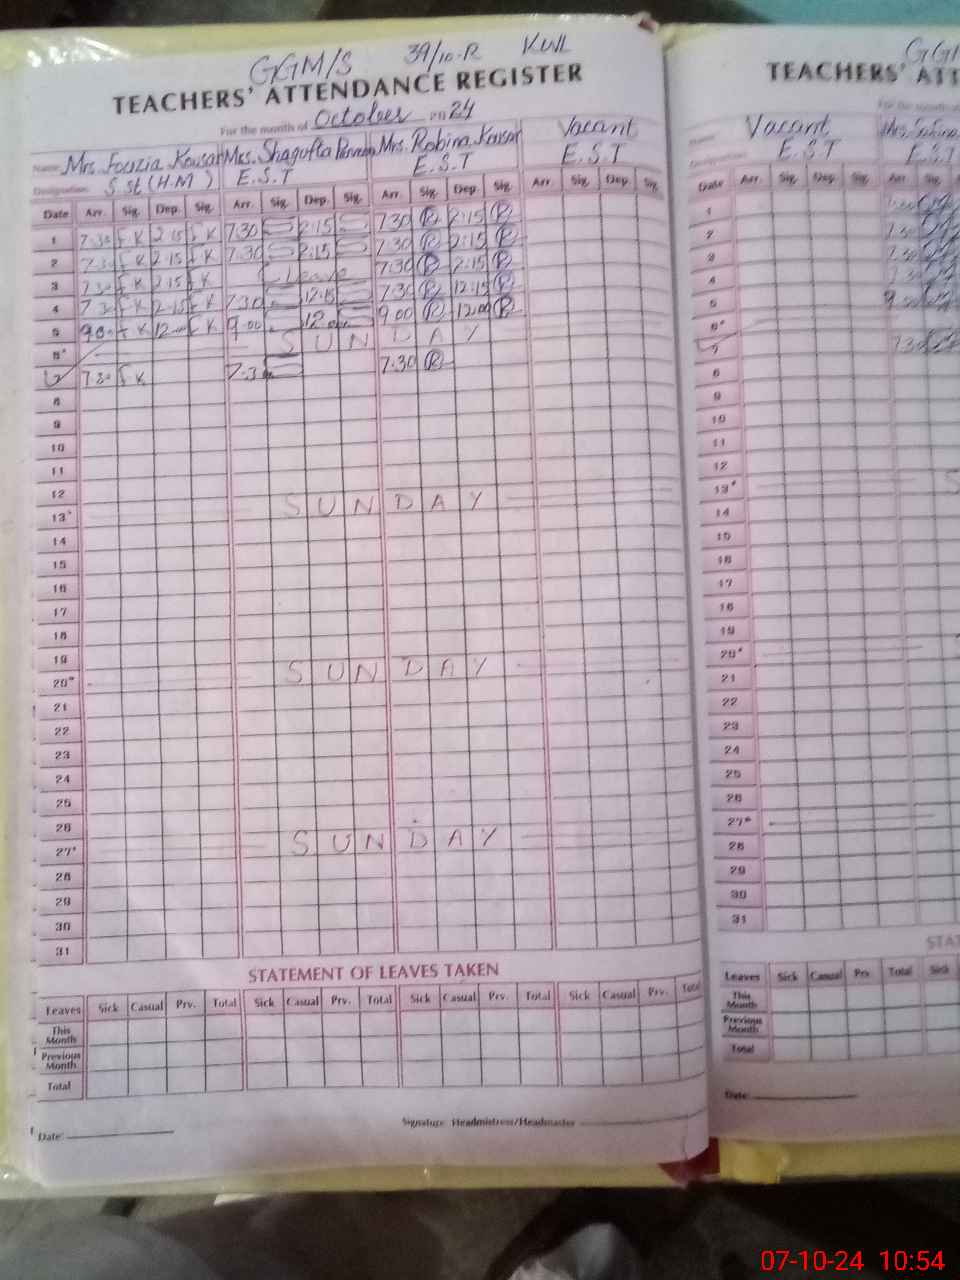 GGM/S 39/10-R KWL
TEACHERS' ATTENDANCE REGISTER
For the month of October 2024
Name: Mrs. Fouzia Kousar Mrs. Shagufta Parveen Mrs. Robina Kousar Vacant
Designation: S.St (H.M) E.S.T E.S.T E.S.T
Date Arr. Sig. Dep. Sig. Arr. Sig. Dep. Sig. Arr. Sig. Dep. Sig. Arr. Sig. Dep. Sig.
1 7.30 F.K 2.15 F.K 7.30 2.15 7.30 R 2:15 R
2 7.30 F.K 2.15 F.K 7.30 2:15 7.30 R 2:15 R
3 7.30 F.K 2.15 F.K Leave 7.30 R 2:15 R
4 7.30 F.K 2.15 F.K 7.30 12.15 7.30 R 12:15 R
5 9.00 F.K 12.00 F.K 9.00 12.00 9.00 R 12.00 R
6* SUNDAY
7 7.30 F.K 7.30 7.30 R
8
9
10
11
12
13* SUNDAY
14
15
16
17
18
19
20* SUNDAY
21
22
23
24
25
26
27* SUNDAY
28
29
30
31
STATEMENT OF LEAVES TAKEN
Leaves Sick Casual Prv. Total Sick Casual Prv. Total Sick Casual Prv. Total Sick Casual Prv. Total
This Month
Previous Month
Total
Date: Signature Headmistress/Headmaster
GGM
TEACHERS' ATT
For the month
Name: Vacant Mrs.
Designation: E.S.T E.S.T
Date Arr. Sig. Dep. Sig. Arr. Sig.
1 7.30
2 7.30
3 7.30
4 7.30
5 9.00
6*
7 7.30
8
9
10
11
12
13* S
14
15
16
17
18
19
20*
21
22
23
24
25
26
27*
28
29
30
31
STA
Leaves Sick Casual Prv. Total Sick
This Month
Previous Month
Total
Date:
07-10-24 10:54